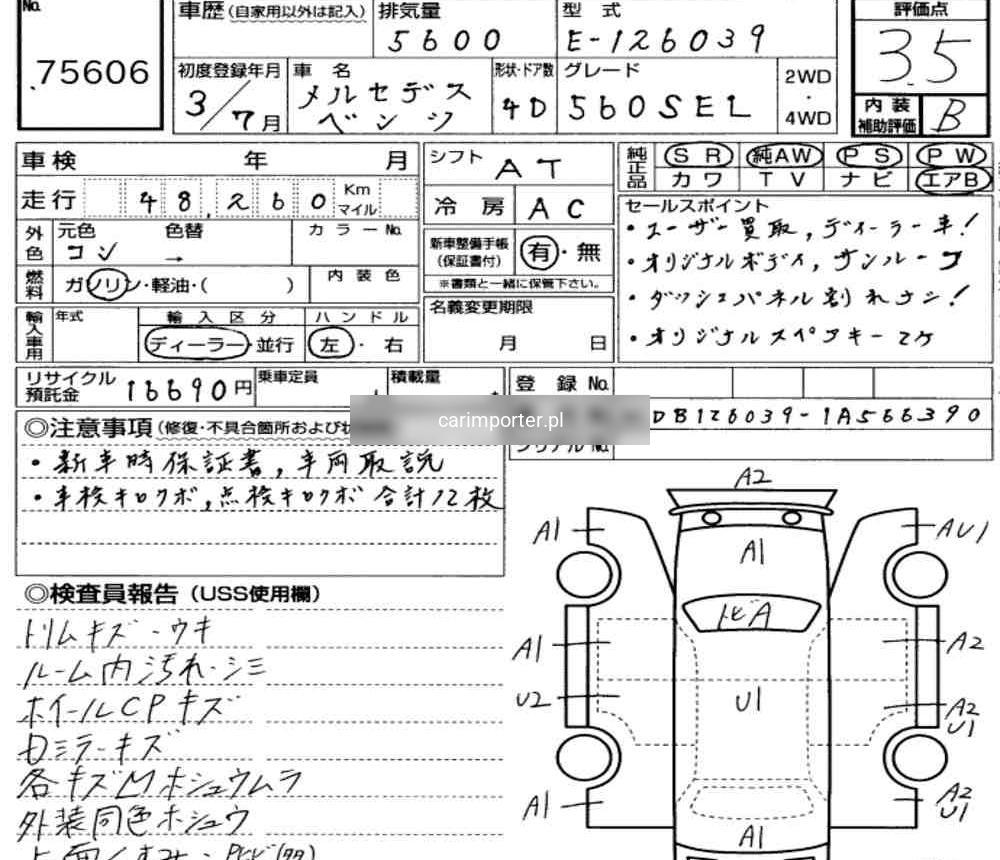 No.
75606
車歴(自家用以外は記入)
排気量
5600
型式
E-126039
評価点
3.5
初度登録年月
3/7月
車名
メルセデス
ベンツ
形状・ドア数
4D
グレード
560SEL
2WD
・
4WD
内装
補助評価
B
車検 年 月
走行 48,260 Km マイル
シフト AT
冷房 AC
純正品
SR 純AW PS PW
カワ TV ナビ エアB
外色
元色 コン
色替 →
カラーNo.
新車整備手帳
(保証書付)
有・無
※書類と一緒に保管下さい。
セールスポイント
・ユーザー買取,ディーラー車!
・オリジナルボディ,サンルーフ
・ダッシュパネル割れナシ!
・オリジナルスペアキー2ケ
燃料
ガソリン・軽油・( )
内装色
輸入車用
年式
輸入区分
ディーラー・並行
ハンドル
左・右
名義変更期限
月 日
リサイクル
預託金
16690円
乗車定員
積載量
登録No.
DB126039-1A566390
シリアルNo.
carimporter.pl
◎注意事項(修復・不具合箇所および
・新車時保証書,車両取説
・車検キロクボ,点検キロクボ 合計12枚
◎検査員報告(USS使用欄)
トリムキズ・ウキ
ルーム内汚れ・シミ
ホイールCPキズ
各キズMホシュウムラ
外装同色ホシュウ
A2
A1
AU1
A1
トビA
A1
A2
U2
U1
A2
U1
A1
A2
U1
A1